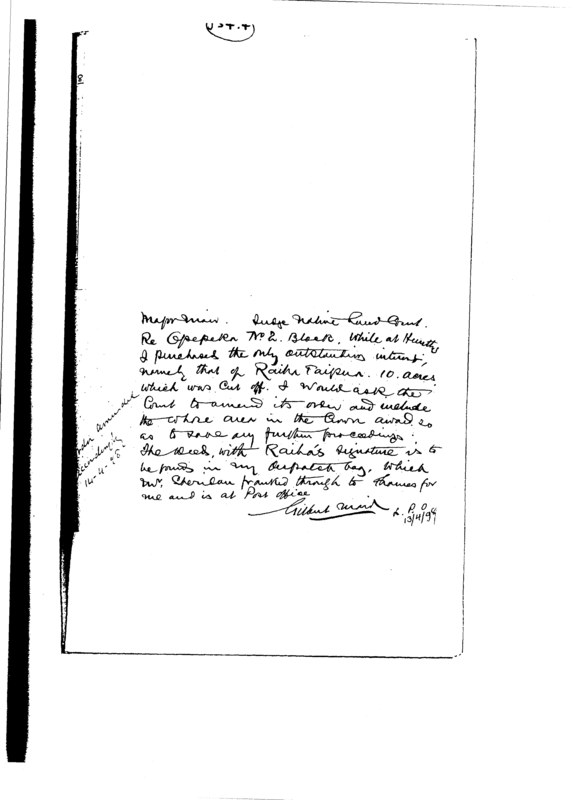 J34.4
Major Mair. Judge Native Land Court.
Re Opepeka No 2. Block, While at Huntly
I purchased the only outstanding interest,
namely that of Raiha Taipua. 10. acres
which was Cut off. I would ask the
Court to amend its order and include
the whole area in the Crown award so
as to save any further proceedings.
The deed, with Raiha's signature is to
be found in my despatch bag, which
Mr. Sheridan franked through to Thames for
me and is at Post Office
Gilbert Mair L. P. O
13/4/9
Order amended
accordingly
14-4-